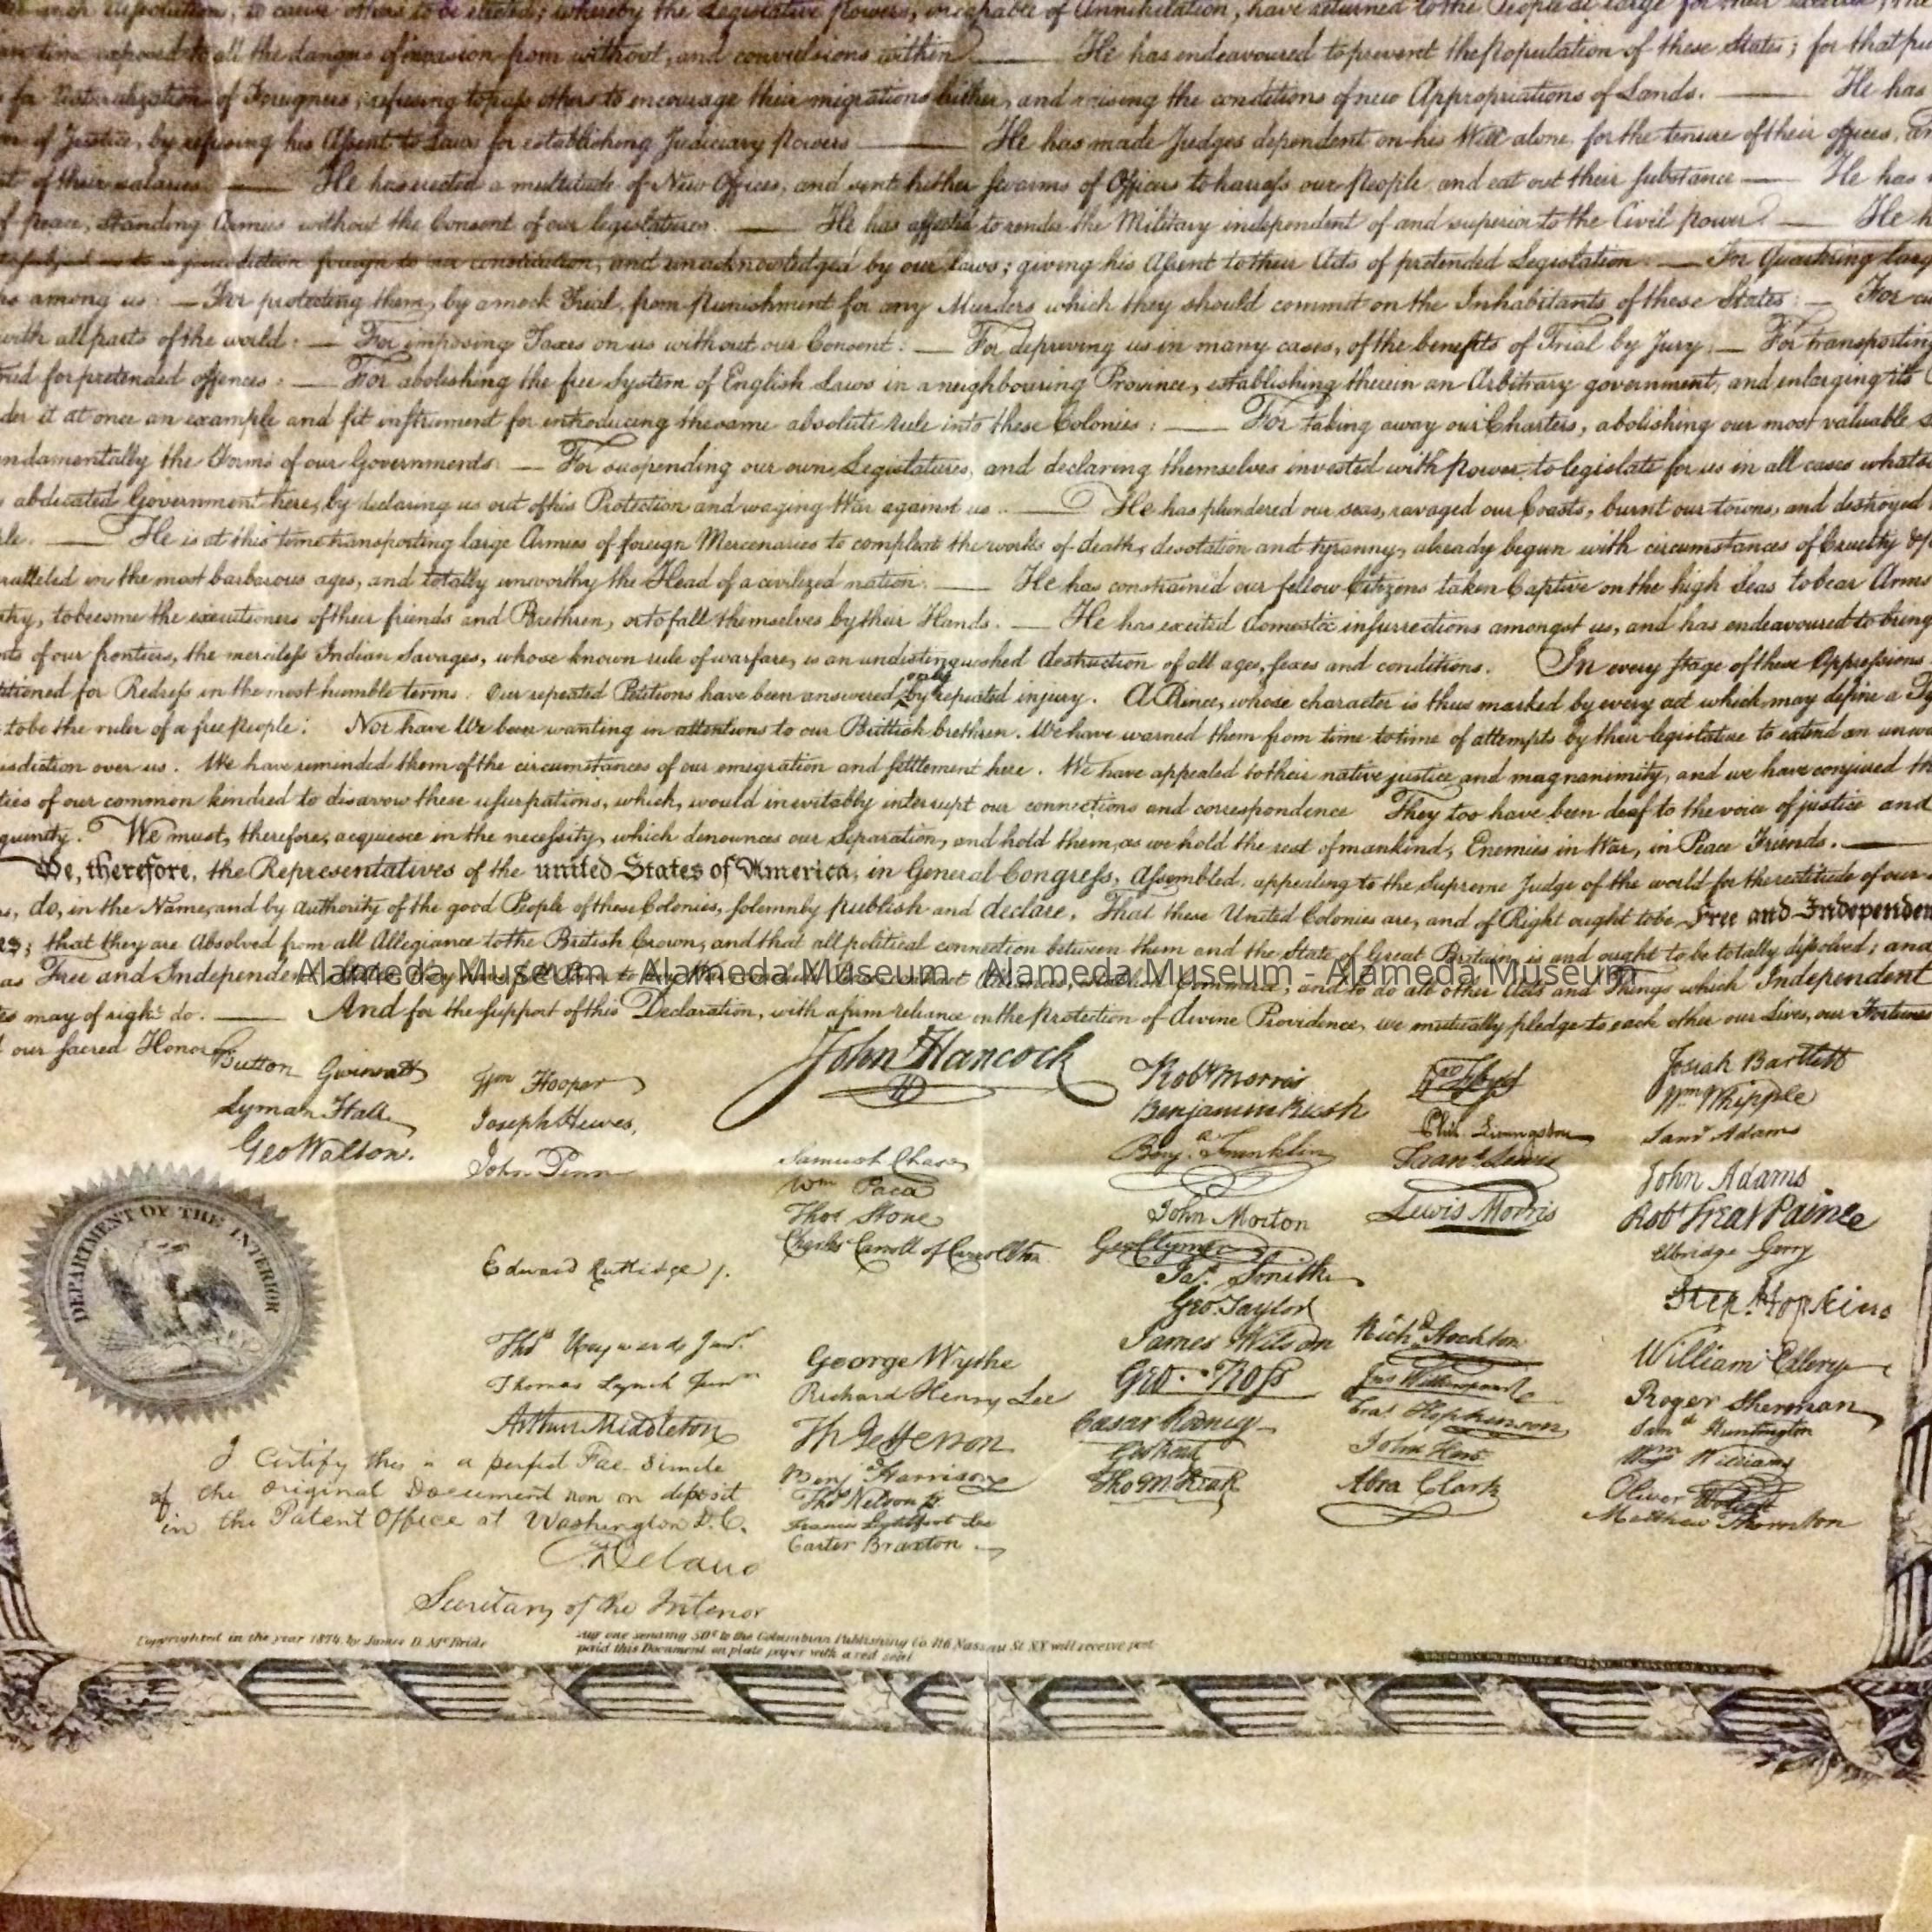 such Dissolutions, to cause others to be elected; whereby the Legislative powers, incapable of Annihilation, have returned to the People at large for their exercise; the
time exposed to all the dangers of invasion from without, and convulsions within. — He has endeavoured to prevent the population of these States; for that pu
for Naturalization of Foreigners; refusing to pass others to encourage their migrations hither, and raising the conditions of new Appropriations of Lands. — He has
of Justice, by refusing his Assent to Laws for establishing Judiciary powers — He has made Judges dependent on his Will alone, for the tenure of their offices,
of their salaries. — He has erected a multitude of New Offices, and sent hither swarms of Officers to harrass our people, and eat out their substance — He has
of peace, Standing Armies without the Consent of our legislatures. — He has affected to render the Military independent of and superior to the Civil power. — He h
to a jurisdiction foreign to our constitution, and unacknowledged by our laws; giving his Assent to their Acts of pretended Legislation: — For Quartering larg
among us: — For protecting them, by a mock Trial, from punishment for any Murders which they should commit on the Inhabitants of these States: — For cu
with all parts of the world: — For imposing Taxes on us without our Consent: — For depriving us in many cases, of the benefits of Trial by Jury: — For transporting
ried for pretended offences: — For abolishing the free System of English Laws in a neighbouring Province, establishing therein an Arbitrary government, and enlarging its
der it at once an example and fit instrument for introducing the same absolute rule into these Colonies: — For taking away our Charters, abolishing our most valuable
ndamentally the Forms of our Governments: — For suspending our own Legislatures, and declaring themselves invested with power to legislate for us in all cases whats
abdicated Government here, by declaring us out of his Protection and waging War against us. — He has plundered our seas, ravaged our Coasts, burnt our towns, and destroyed
ple. — He is at this time transporting large Armies of foreign Mercenaries to compleat the works of death, desolation and tyranny, already begun with circumstances of Cruelty & p
ralleled in the most barbarous ages, and totally unworthy the Head of a civilized nation. — He has constrained our fellow Citizens taken Captive on the high Seas to bear Arms
try, to become the executioners of their friends and Brethren, or to fall themselves by their Hands. — He has excited domestic insurrections amongst us, and has endeavoured to bring
nts of our frontiers, the merciless Indian Savages, whose known rule of warfare, is an undistinguished destruction of all ages, sexes and conditions. In every stage of these Oppressions
titioned for Redress in the most humble terms: Our repeated Petitions have been answered only by repeated injury. A Prince, whose character is thus marked by every act which may define a Ty
to be the ruler of a free people. Nor have We been wanting in attentions to our Brittish brethren. We have warned them from time to time of attempts by their legislature to extend an unwa
isdiction over us. We have reminded them of the circumstances of our emigration and settlement here. We have appealed to their native justice and magnanimity, and we have conjured th
ties of our common kindred to disavow these usurpations, which, would inevitably interrupt our connections and correspondence They too have been deaf to the voice of justice and
guinity. We must, therefore, acquiesce in the necessity, which denounces our Separation, and hold them, as we hold the rest of mankind, Enemies in War, in Peace Friends. —
We, therefore, the Representatives of the united States of America, in General Congress, Assembled, appealing to the Supreme Judge of the world for the rectitude of our
s, do, in the Name, and by authority of the good People of these Colonies, solemnly publish and declare, That these United Colonies are, and of Right ought to be Free and Independen
es; that they are Absolved from all Allegiance to the British Crown, and that all political connection between them and the State of Great Britain, is and ought to be totally dissolved; and
as Free and Independent and to do all other Acts and Things which Independent
Alameda Museum - Alameda Museum - Alameda Museum - Alameda Museum
es may of right do. — And for the support of this Declaration, with a firm reliance on the protection of divine Providence, we mutually pledge to each other our Lives, our Fortunes
our sacred Honor.
Button Gwinnett
Lyman Hall
Geo Walton.
Wm Hooper
Joseph Hewes,
John Penn
Edward Rutledge /.
Thos Heyward Junr.
Thomas Lynch Junr
Arthur Middleton
John Hancock
Samuel Chase
Wm Paca
Thos Stone
Charles Carroll of Carrollton
George Wythe
Richard Henry Lee
Th Jefferson
Benj Harrison
Thos Nelson jr.
Francis Lightfoot Lee
Carter Braxton
Robt Morris
Benjamin Rush
Benj. Franklin
John Morton
Geo Clymer
Jas. Smith
Geo. Taylor
James Wilson
Geo. Ross
Caesar Rodney
Geo Read
Tho M:Kean
Wm Floyd
Phil. Livingston
Frans. Lewis
Lewis Morris
Richd. Stockton
Jno Witherspoon
Fras. Hopkinson
John Hart
Abra Clark
Josiah Bartlett
Wm Whipple
Saml Adams
John Adams
Robt Treat Paine
Elbridge Gerry
Step. Hopkins
William Ellery
Roger Sherman
Saml Huntington
Wm Williams
Oliver Wolcott
Matthew Thornton
DEPARTMENT OF THE INTERIOR
I Certify this is a perfect Fac Simile
of the original Document now on deposit
in the Patent Office at Washington D.C.
C. Delano
Secretary of the Interior
Copyrighted in the year 1874 by James D. McBride
Any one sending 50c to the Columbian Publishing Co. 116 Nassau St NY will receive post-
paid this Document on plate paper with a red seal